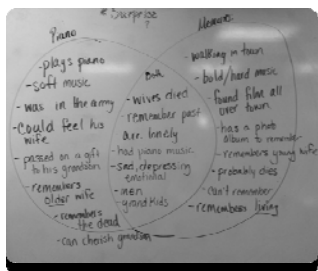 * Surprise
?
Piano
- plays piano
- soft music
- was in the army
- could feel his
wife
- passed on a gift
to his grandson
- remembers
older wife
- remembers
the dead
- can cherish grandson
Both
- wives died
- remember past
are lonely
- had piano music
- sad, depressing
emotional
- men
grandkids
- walking in town
- bold/hard music
- found film all
over town
- has a photo
album to remember
- remembers young wife
- probably dies
- can't remember
- remembers living